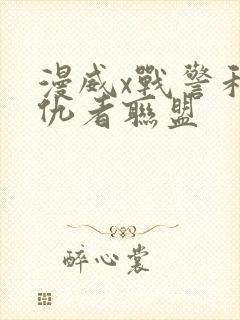 漫威x戰警和復
仇者聯盟
醉心裳